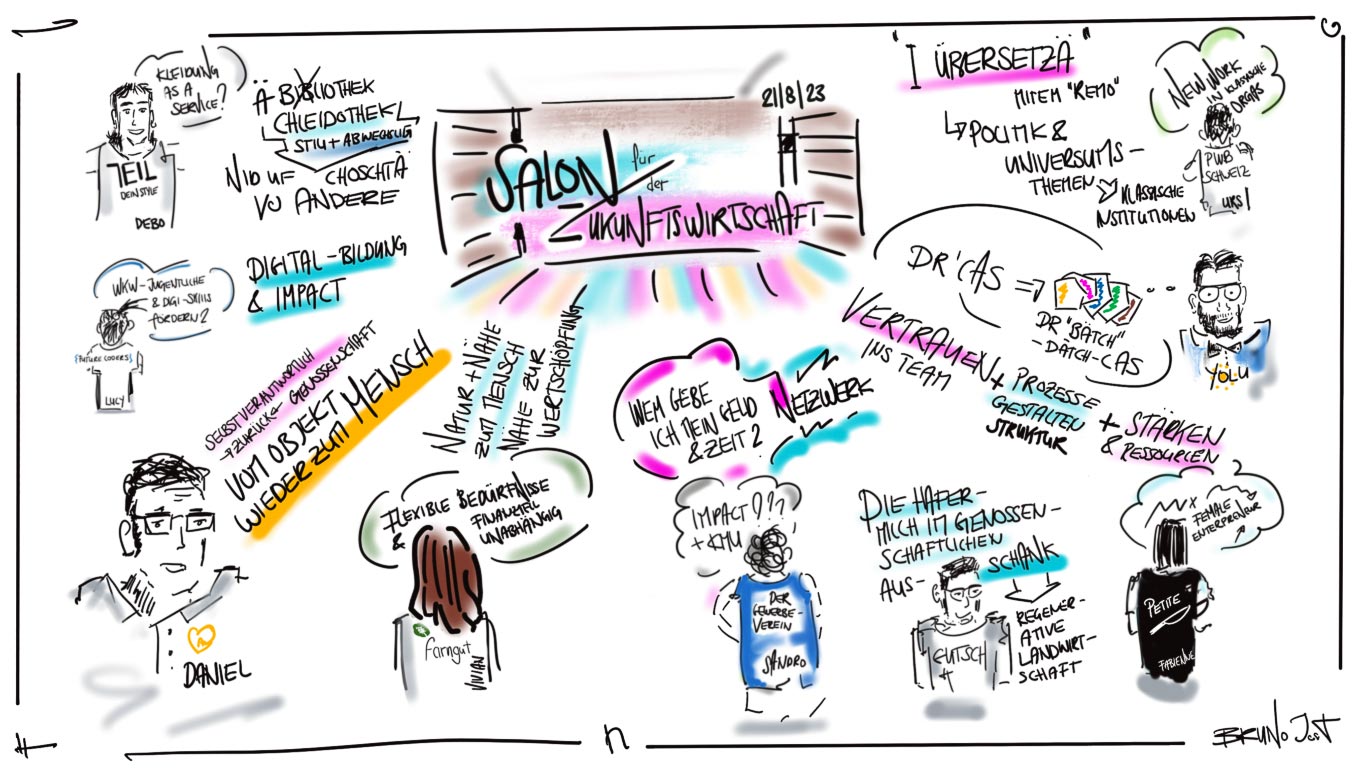 KLEIDUNG
AS A
SERVICE?
TEIL
DEIN STYLE
DEBO
Ä BIBLIOTHEK
CHLEIDOTHEK
STIL + ABWECHSLIG
NID UF CHOSCHTÄ
VO ANDERE
SALON
für
der
ZUKUNFTSWIRTSCHAFT
21/8/23
"I ÜBERSETZÄ"
MITEM "REMO"
POLITIK &
UNIVERSUMS-
THEMEN
KLASSISCHE
INSTITUTIONEN
NEW WORK
IN KLASSISCHE
ORGAS
PWB
SCHWEIZ
URS
WKW-JUGENTLICHE
& DIGI-SKILLS
FÖRDERN?
FUTURE CODERS
LUCY
DIGITAL-BILDUNG
& IMPACT
SELBSTVERANTWORTLICH
→ ZURÜCK GENOSSENSCHAFT
VOM OBJEKT
WIEDER ZUM MENSCH
DANIEL
NATUR + NÄHE
ZUM MENSCH
NAHE ZUR
WERTSCHÖPFUNG
FLEXIBLE BEDÜRFNISSE
& FINANZIELL
UNABHÄNGIG
farngut
VIVIAN
WEM GEBE
ICH MEIN GELD
& ZEIT?
NETZWERK
IMPACT???
+ KMU
DER
GEWERBE-
VEREIN
SANDRO
DR'CAS
DR "BÄTCH"
-DÄTCH-CAS
YOLU
VERTRAUEN
INS TEAM
+ PROZESSE
GESTALTEN
STRUKTUR
+ STÄRKEN
& RESSOURCEN
DIE HAFER-
MILCH IM GENOSSEN-
SCHAFTLICHEN
AUS-
SCHANK
GUTSCH
REGENER-
ATIVE
LANDWIRT-
SCHAFT
FEMALE
ENTERPRENEUR
PETITE
FABIENNE
BRUNO JOST